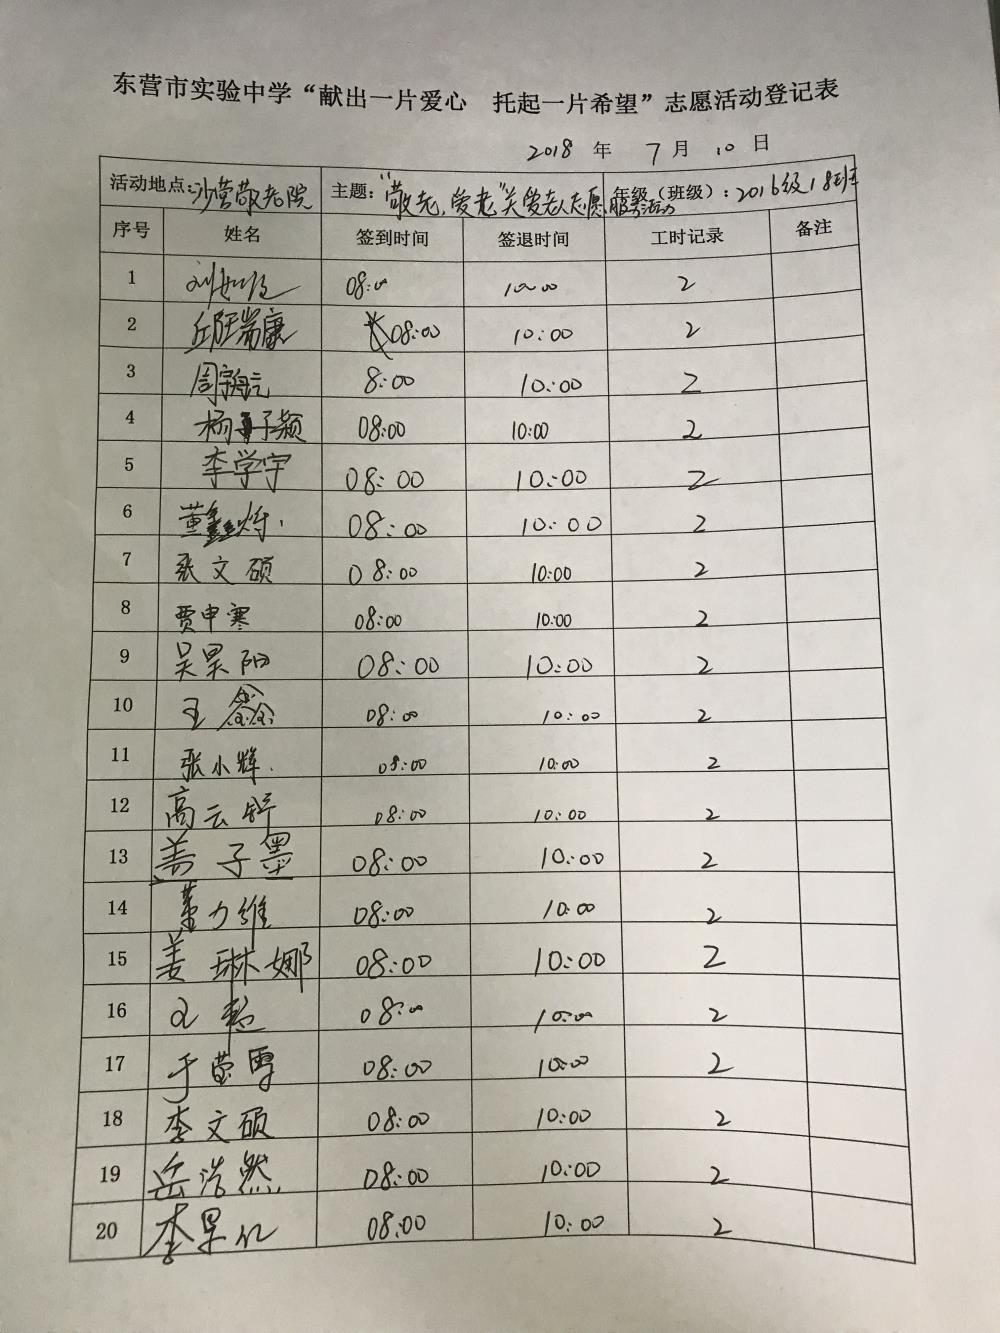 东营市实验中学“献出一片爱心 托起一片希望”志愿活动登记表
2018 年 7 月 10 日
活动地点:沙营敬老院 主题:“敬老,爱老”关爱老人志愿服务活动 年级（班级）：2016级18班
序号 姓名 签到时间 签退时间 工时记录 备注
1 刘 08:00 10:00 2
2 邱阳瑞康 08:00 10:00 2
3 周宇航 8:00 10:00 2
4 杨子颖 08:00 10:00 2
5 李学宇 08:00 10:00 2
6 董鑫烨 08:00 10:00 2
7 张文硕 08:00 10:00 2
8 贾申寒 08:00 10:00 2
9 吴昊阳 08:00 10:00 2
10 王鑫 08:00 10:00 2
11 张小辉 08:00 10:00 2
12 高云舒 08:00 10:00 2
13 盖子墨 08:00 10:00 2
14 董力维 08:00 10:00 2
15 姜琳娜 08:00 10:00 2
16 08:00 10:00 2
17 于莹雪 08:00 10:00 2
18 李文硕 08:00 10:00 2
19 岳浩然 08:00 10:00 2
20 李 08:00 10:00 2